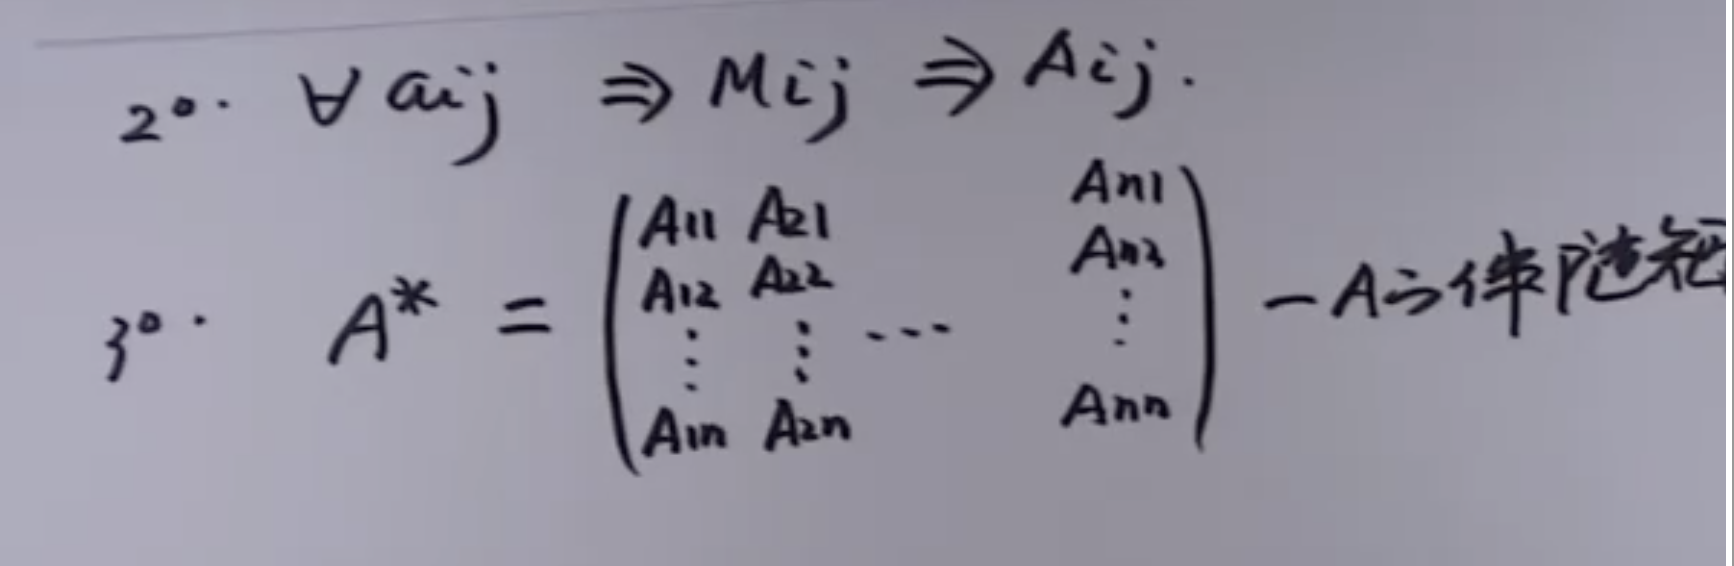 2°. ∀ aij ⇒ Mij ⇒ Aij.
3°. A* = ( A11 A21 An1
A12 A22 An2
⋮ ⋮ ... ⋮
A1n A2n Ann ) — A之伴随矩